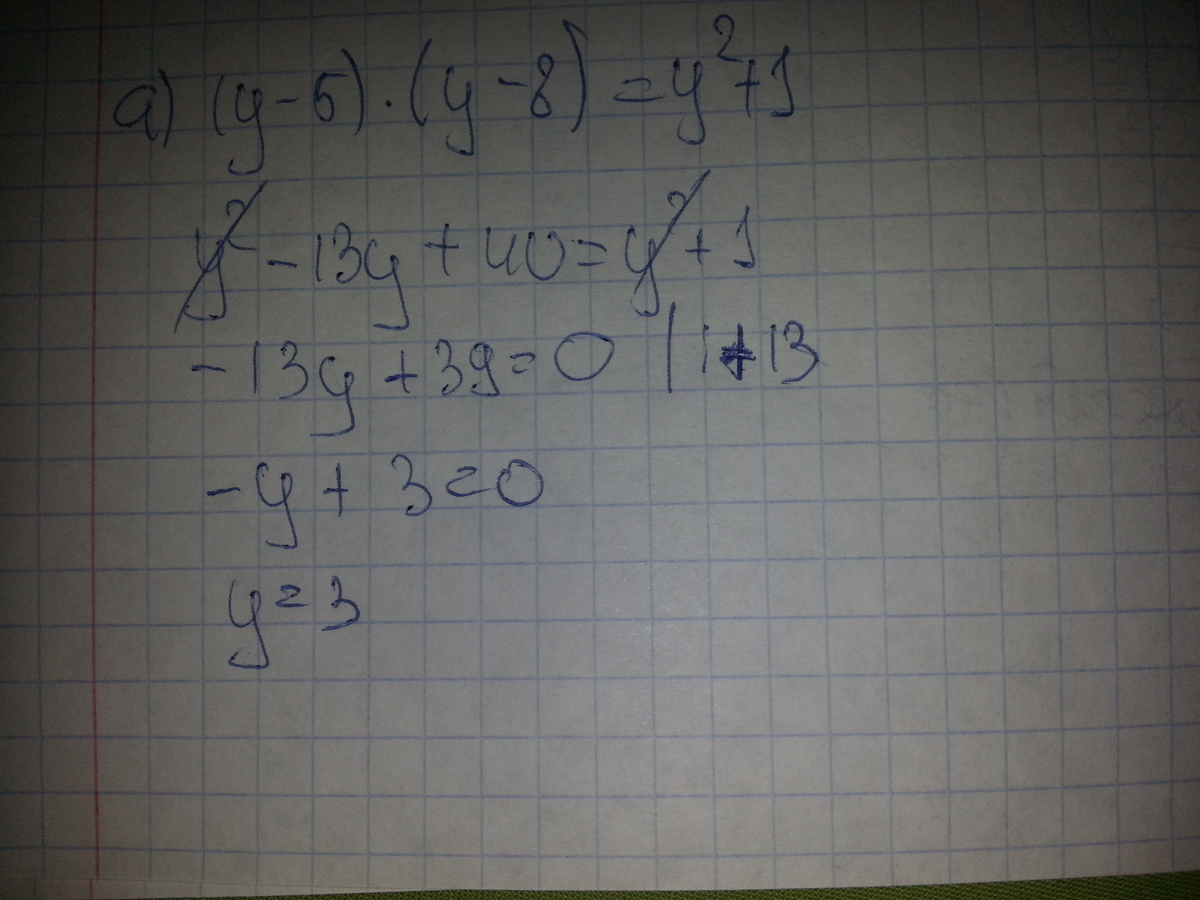 a) (y-5)·(y-8)=y²+1
y²-13y+40=y²+1
-13y+39=0 |:13
-y+3=0
y=3